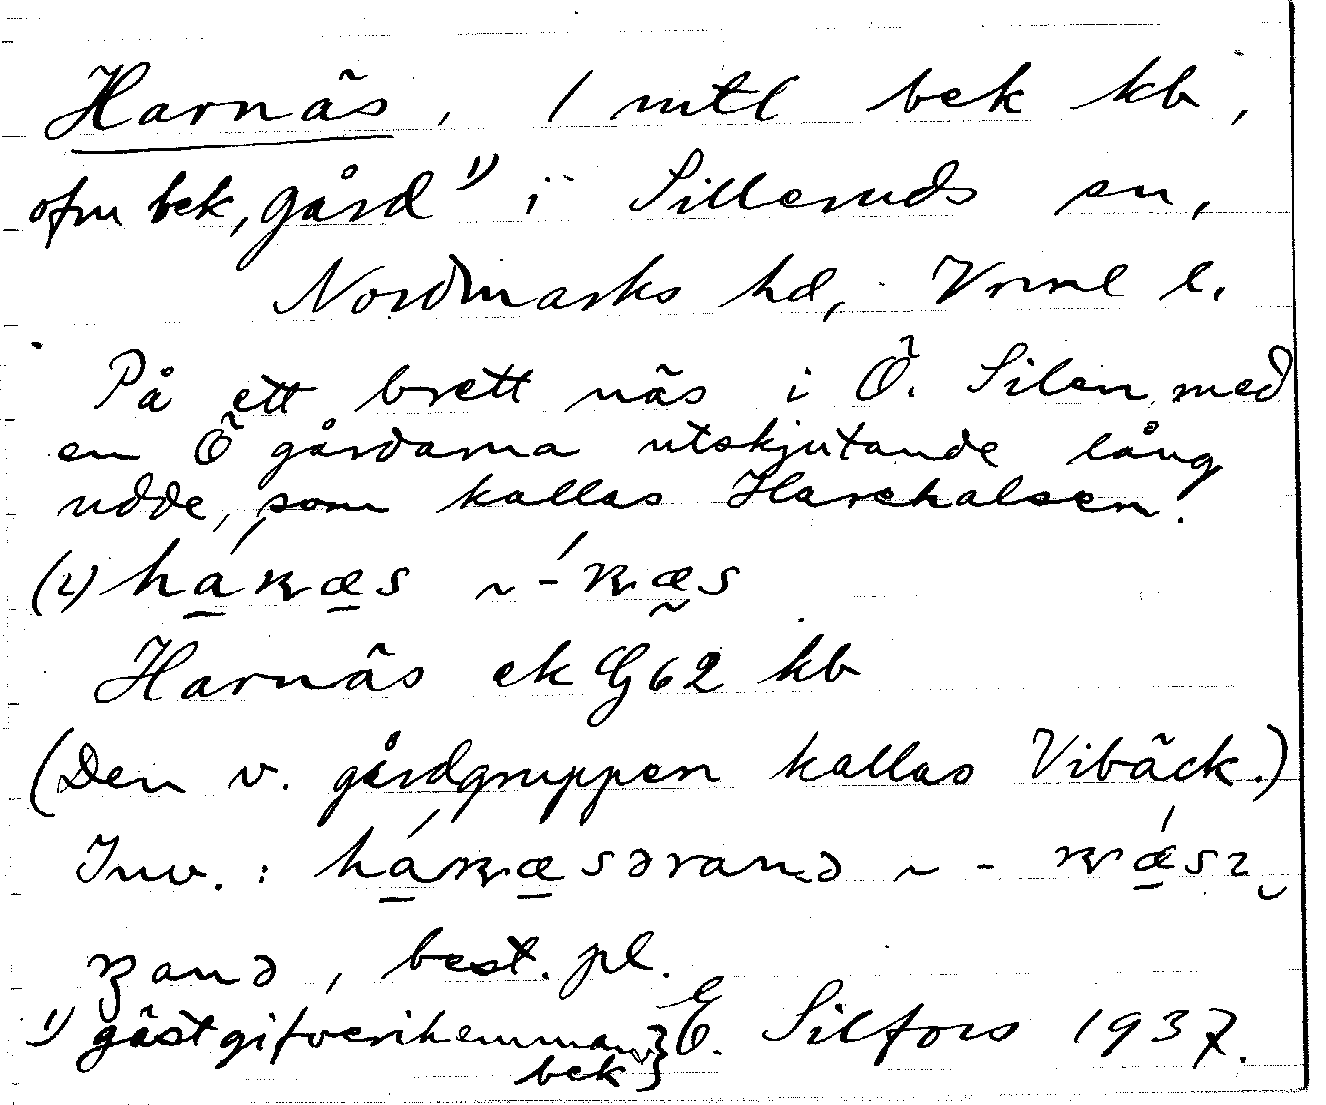 Harnäs, 1 mtl bek kb,
ofm bek, gård ¹⁾ i Silleruds sn,
Nordmarks hd, Vrml l.
På ett brett näs i Ö. Silen med
en Ö gårdarna utskjutande lång
udde, som kallas Harehalsen.
Harnäs ek G62 kb
(Den v. gårdgruppen kallas Vibäck.)
Inv. :
best. pl.
¹⁾ gästgifverihemman bek} E. Silfors 1937.